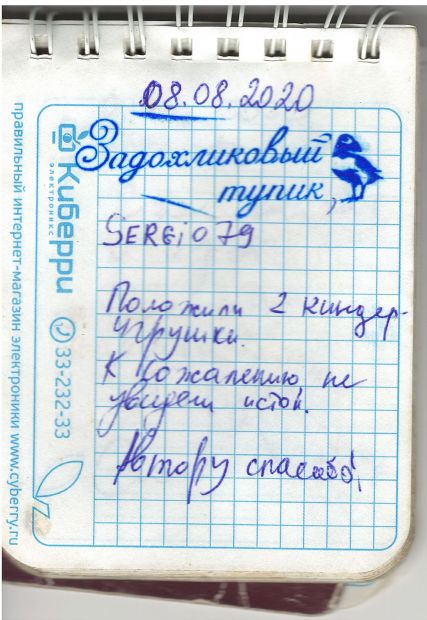 08.08.2020
Задохликовый
тупик,
SERGiO79
Положили 2 киндер-
игрушки.
К сожалению, не
увидели
Автору спасибо!
Киберри
электроникс
33-232-33
правильный интернет-магазин электроники www.cyberry.ru